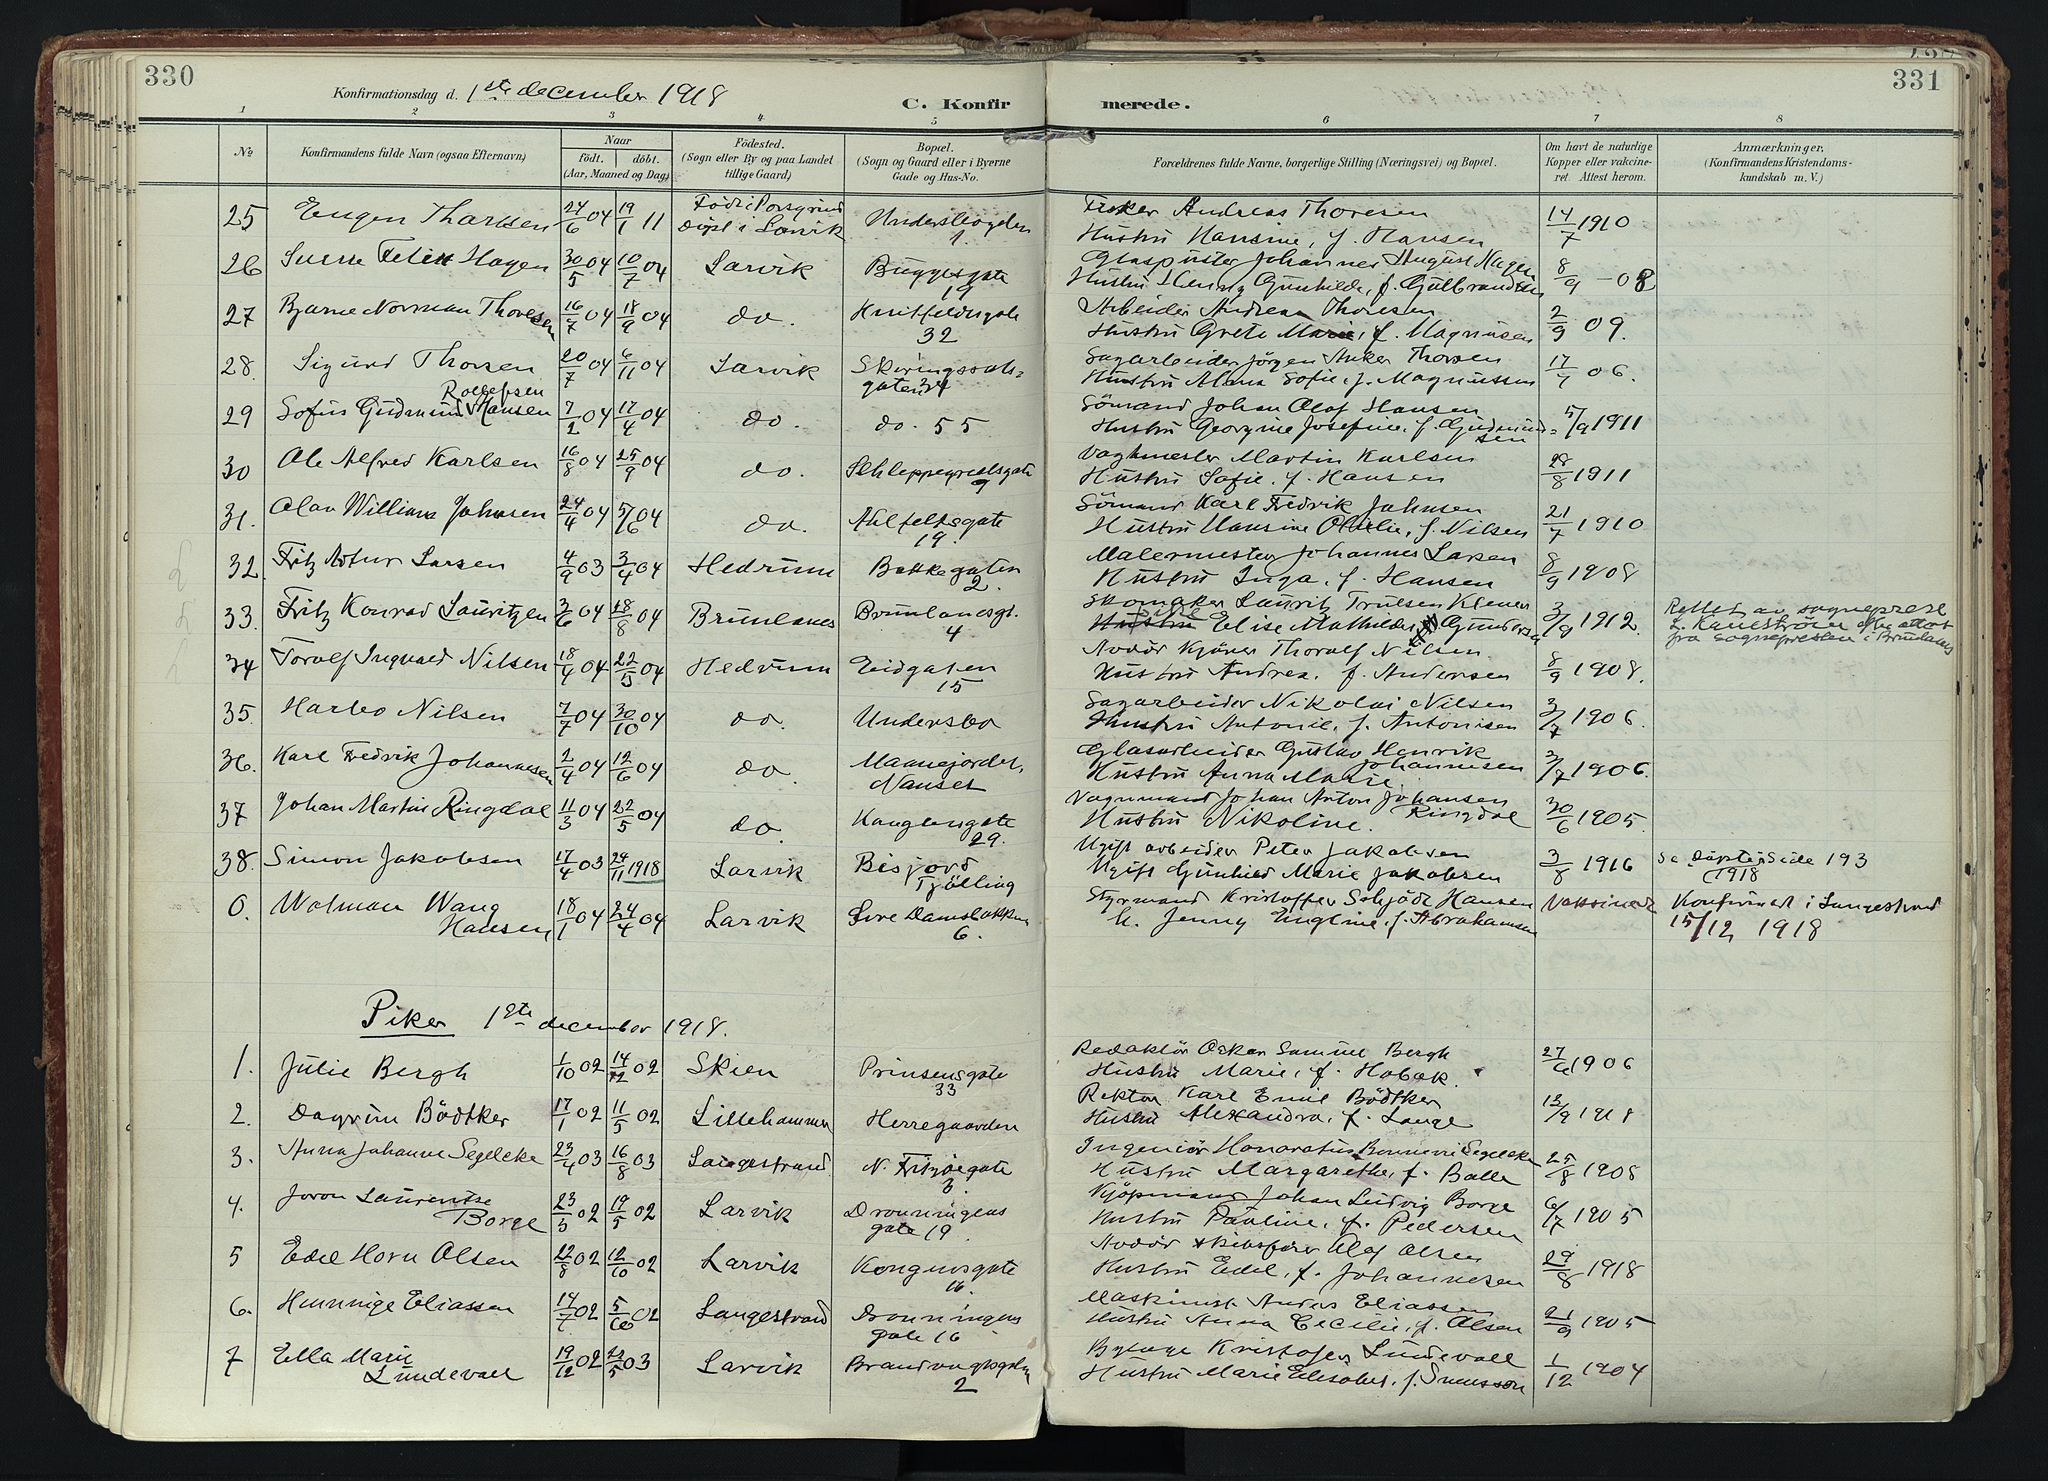 330
Konfirmationsdag d. 1ste december 1918
C. Konfirmerede.
331
1 2 3 4 5 6 7 8
No
Konfirmandens fulde Navn (ogsaa Efternavn)
Naar
født. døbt.
(Aar, Maaned og Dag)
Fødested.
(Sogn eller By og paa Landet
tillige Gaard)
Bopæl.
(Sogn og Gaard eller i Byerne
Gade og Hus-No.
Forældrenes fulde Navne, borgerlige Stilling (Næringsvei) og Bopæl.
Om havt de naturlige
Kopper eller vakcine-
ret. Attest herom.
Anmærkninger.
(Konfirmandens Kristendoms-
kundskab m. V.)
25 Eugen Thorsen 24/6 04 19/1 11 Född i Porsgrund Andreas Thoresen 14/7 1910
döpt i Larvik 1. Hustru Hansine, f. Hansen
26 Sverre Hagen 30/5 04 10/7 04 Larvik Buggesgate 19 Glaspuster Johannes August Hagen 8/9 - 08
Hustru Henny Gunhilde, f. Gulbrandsen
27 Bjarne Norman Thoresen 16/7 04 18/9 04 do. Huitfeldtsgate 32 Arbeider Andreas Thoresen 2/9 09.
Hustru Grete Marie, f. Magnusen
28. Sigurd Thorsen 20/7 04 6/11 04 Larvik Skiringssals=gaten 34 Sagarbeider Jörgen Anker Thorsen 17/7 06.
Hustru Maria Sofie, f. Magnussen
29 Sofus Gudmund Rollefsen Hansen 7/2 04 17/4 04 do. do. 55 Sömand Johan Olaf Hansen 5/9 1911
Hustru Georgine Josefine, f. Gudmund=sen
30 Ole Alfred Karlsen 16/8 04 25/9 04 do. Schleppegrellsgate 9 Vagtmester Martin Karlsen 28/8 1911
Hustru Sofie, f. Hansen
31. Olav William Johnsen 24/4 04 5/6 04 do. Ahlefeltsgate 19. Sömand Karl Fredrik Johnsen 21/7 1910
Hustru Hansine, f. Nilsen
32 Fritz Artur Larsen 4/9 03 3/4 04 Hedrum Bakkegaten 2. Malermester Johannes Larsen 8/9 1908
Hustru Inga, f. Hansen
33. Fritz Konrad Lauritzen 3/6 04 28/8 04 Brunlanes Brunlanesgt. 4 Skomaker Laurits Trulsen 3/9 1912. Rettet av sogneprest
Hustru Elise Mathilde Gundersen
fra sognepresten i Brunlanes
34 Toralf Ingvald Nilsen 18/4 04 22/5 04 Hedrum Eidgaten 15 Avdöd Kjörer Thoralf Nilsen 8/9 1908.
Hustru Andrea, f. Andersen
35. Harbo Nilsen 7/7 04 30/10 04 do. Undersbo Sagarbeider Nikolai Nilsen 3/7 1906.
Hustru Antonie, f. Antonisen
36. Karl Fredrik Johannesen 2/4 04 12/6 04 do. Maanejordet, Nanset Glasarbeider Gustav Henrik Johannesen 3/7 1906.
Hustru Anna Marie
37 Johan Martin Ringdal 11/3 04 22/5 04 do. Kongensgate 29. Vognmand Johan Anton Johansen Ringdal 30/6 1905.
Hustru Nikoline.
38. Simon Jakobsen 17/4 03 24/11 1918 Larvik Bisjord Tjölling Ugift arbeider Peter Jakobsen 3/8 1916 Se döpte Side 193
Ugift Gunhild Marie Jakobsen 1918
0. Walman Wang Hansen 18/1 04 24/4 04 Larvik Övre Damsbakken 6. Styrmand Kristoffer Schjödt Hansen Vaksinert Konfirmert i Langestrand
H. Jenny Engeline, f. Abrahamsen 15/12 1918
Piker 1ste december 1918.
1. Julie Bergh 1/10 02 14/12 02 Skien Prinsensgate 33 Redaktör Oskar Samuel Bergh 27/6 1906
Hustru Marie, f. Hobæk.
2. Dagrun Bödtker 17/1 02 11/5 02 Lillehammer Herregaarden Rektor Karl Emil Bödtker 13/9 1918
Hustru Alexandra, f. Lange
3. Anna Johanne Segelcke 23/4 03 16/8 03 Langestrand N. Fritzöegate 3. Ingeniör Honoratus Bonnevie Segelcke 25/8 1908
Hustru Margarethe, f. Balle
4. Joron Laurentse Borge 23/3 02 19/5 02 Larvik Dronningens gate 19 Kjöpmand Johan Ludvig Borge 6/7 1905
Hustru Pauline, f. Pedersen
5 Edel Horn Olsen 22/8 02 12/10 02 Larvik Kongensgate 16. Avdöd skibsförer Olaf Olsen 29/8 1918
Hustru Edel, f. Johannesen
6. Hennige Eliassen 14/7 02 5/10 02 Langestrand Dronningens gate 16 Maskinist Anders Eliassen 21/9 1905
Hustru Anna Cecilie, f. Olsen
7 Ella Marie Lundevall 19/12 02 5 03 Larvik Brandvagtsgaten 2 Kristofer Lundevall 1/12 1904
Hustru Marie Elisabet, f. Svensson